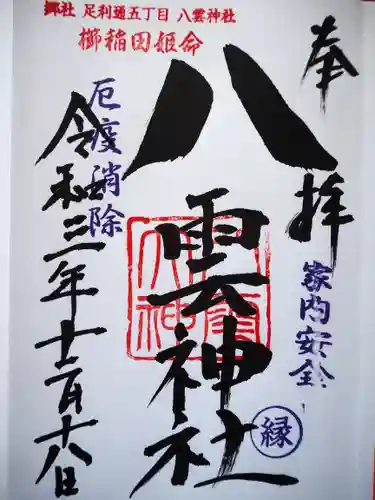 郷社 足利通五丁目 八雲神社
櫛稲田姫命
奉拝
八雲神社
家内安全
縁
厄疫消除
令和三年十二月十八日